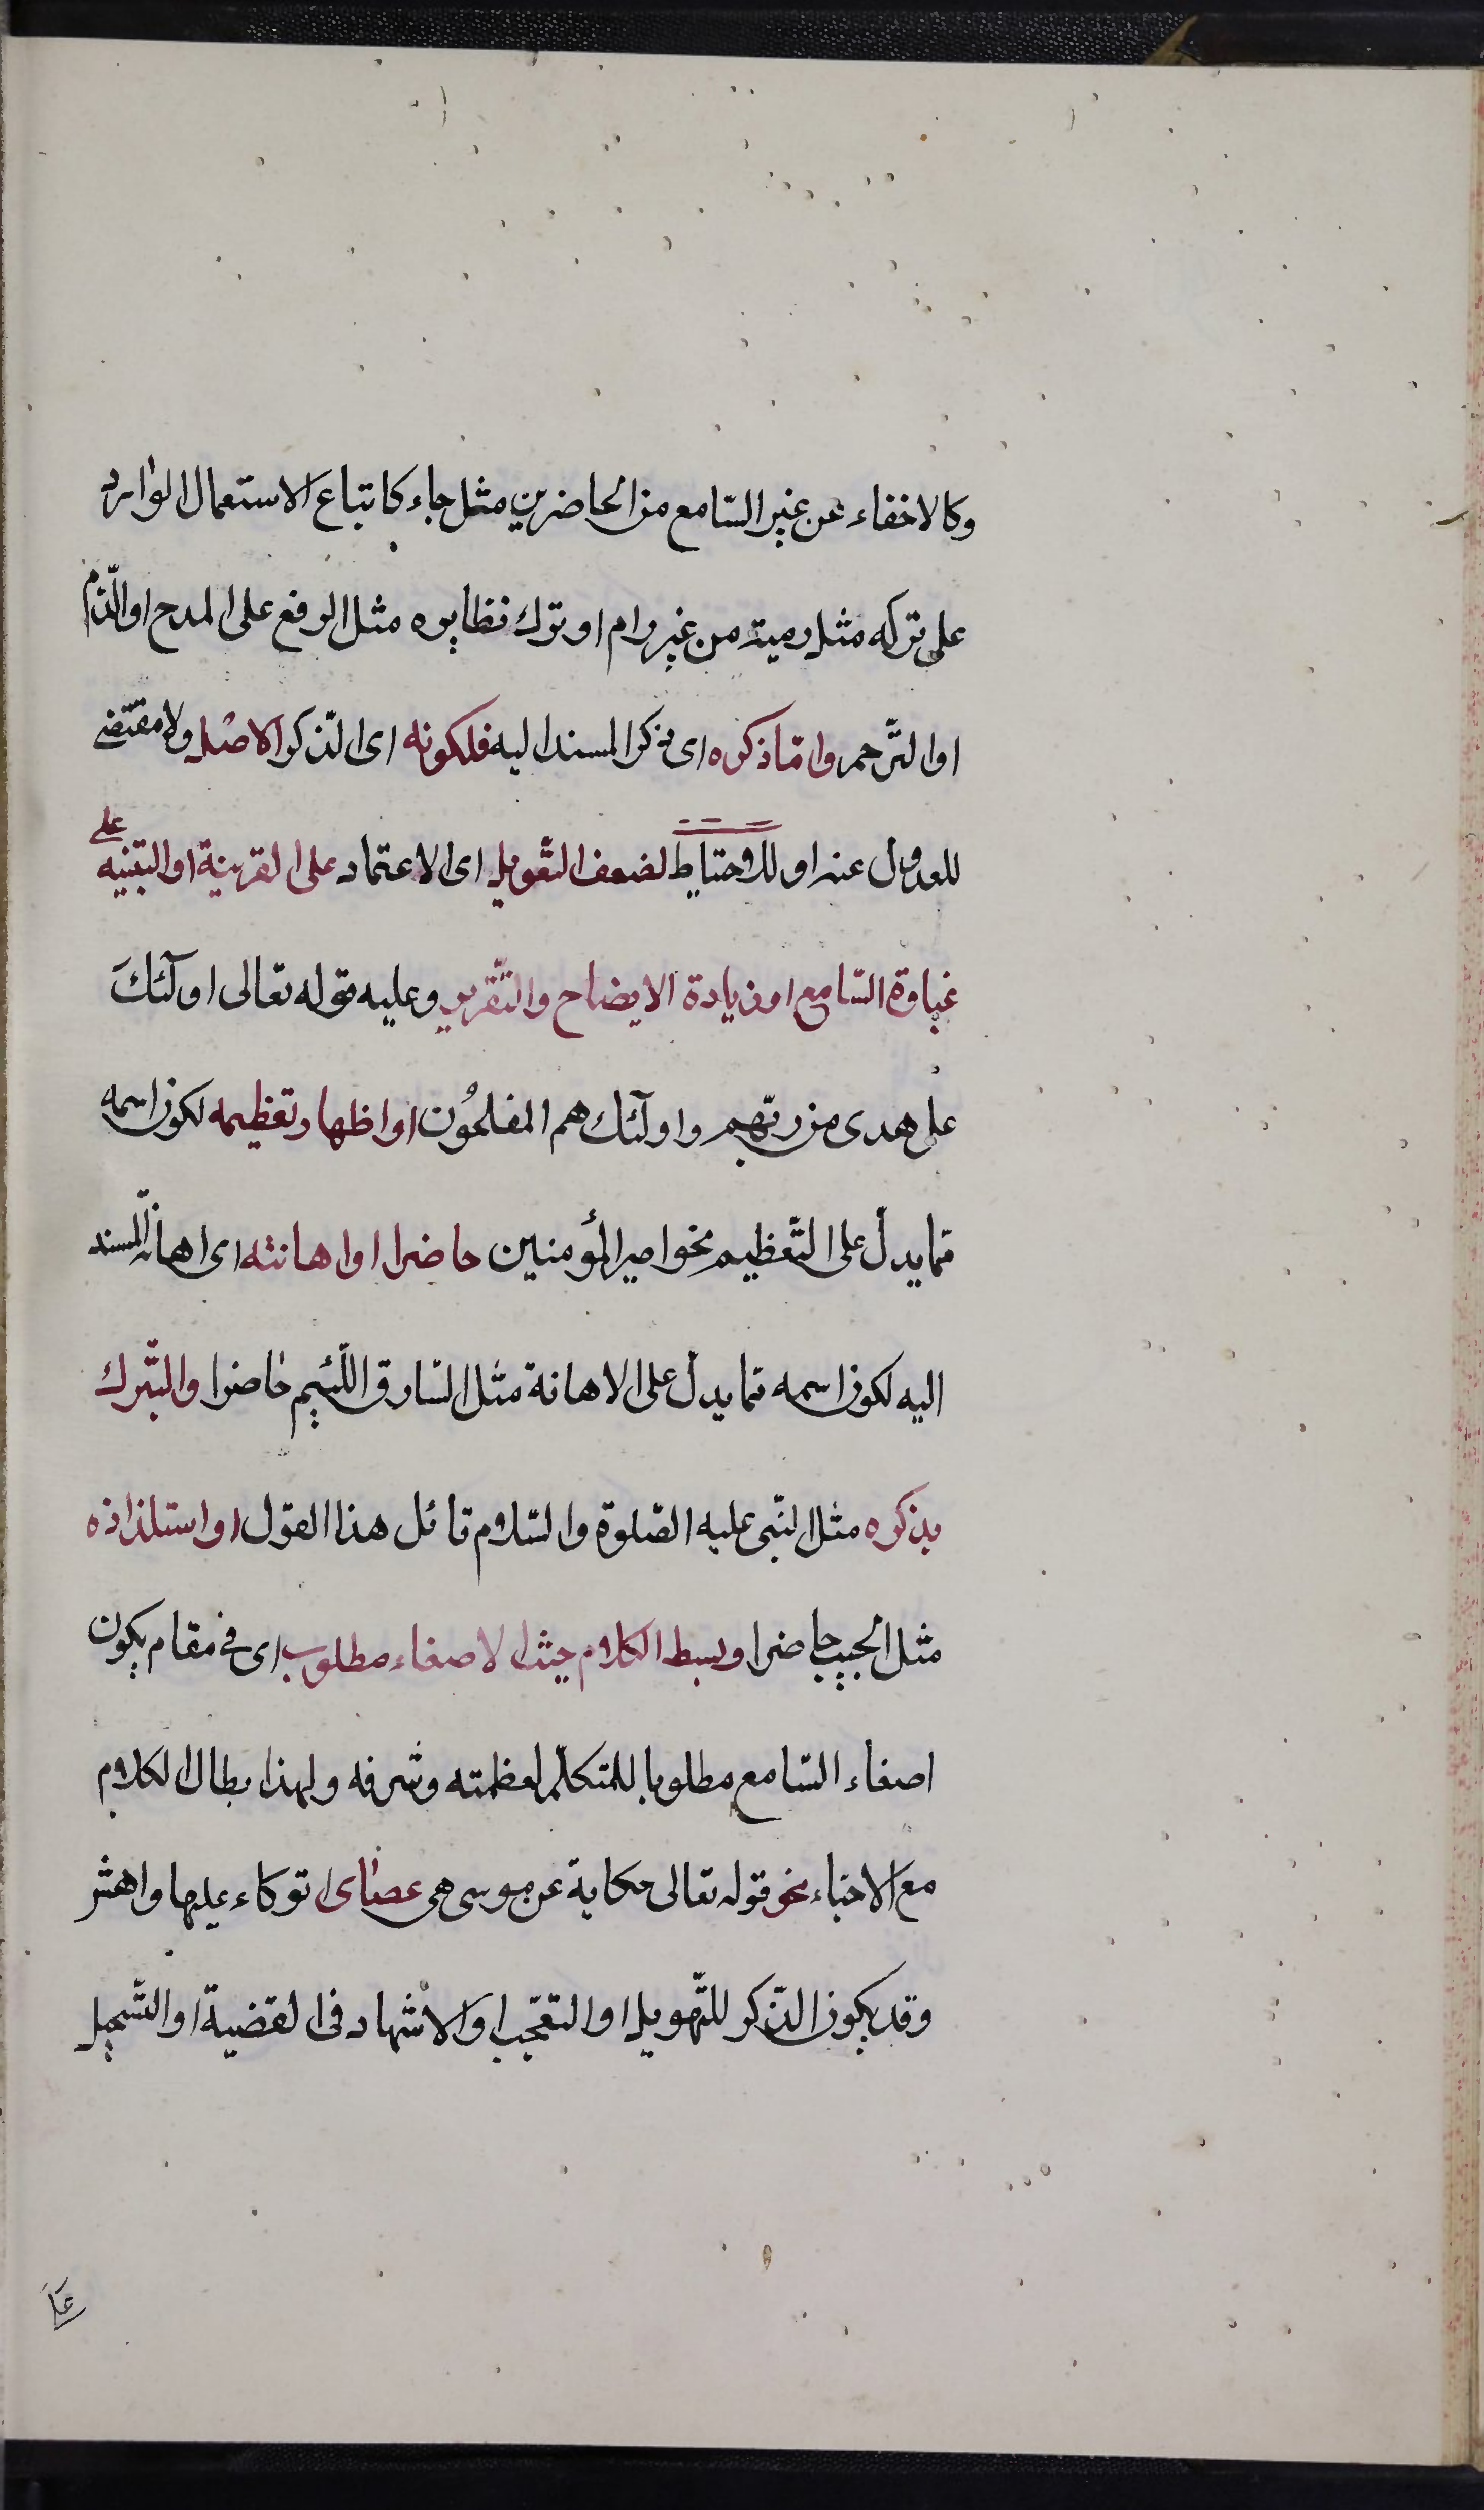 وكالاخفاء عن غير السّامع من الحاضرين مثل جاء كاتباع الاستعمال الوارد
على تركه مثل رمية من غير رام او ترك نظايره مثل الرفع على المدح او الذّم
او الترّحم وامّا ذكره اى ذكر المسند اليه فلكونه اى الذّكر الاصل ولا مقتضى
للعدول عنه او للاحتياط لضعف التّعويل اى الاعتماد على القرينة او التنبيه على
غباوة السّامع او زيادة الايضاح والتّقرير وعليه قوله تعالى اولٓئك
على هدى من ربّهم واولٓئك هم المفلحُون او اظهار تعظيمه لكون اسمه
ممّا يدلّ على التّعظيم نحو امير المؤمنين حاضر او اهانته اى اهانة المسند
اليه لكون اسمه ممّا يدلّ على الاهانة مثل السّارق اللّئيم حاضرا والتّبرك
بذكره مثل النّبى عليه الصّلوة والسّلام قائل هذا القول او استلذاذه
مثل الحبيب حاضرا وبسط الكلام حيث الاصغاء مطلوب اى فى مقام يكون
اصغاء السّامع مطلوبا للمتكلّم لعظمته وشرفه ولهذا يطال الكلام
مع الاحباء نحو قوله تعالى حكاية عن موسى هى عصاى اتوكاء عليها واهش
وقد يكون الذّكر للتّهويل او التعجّب او الاشهاد فى القضية او التسّجيل
علَى